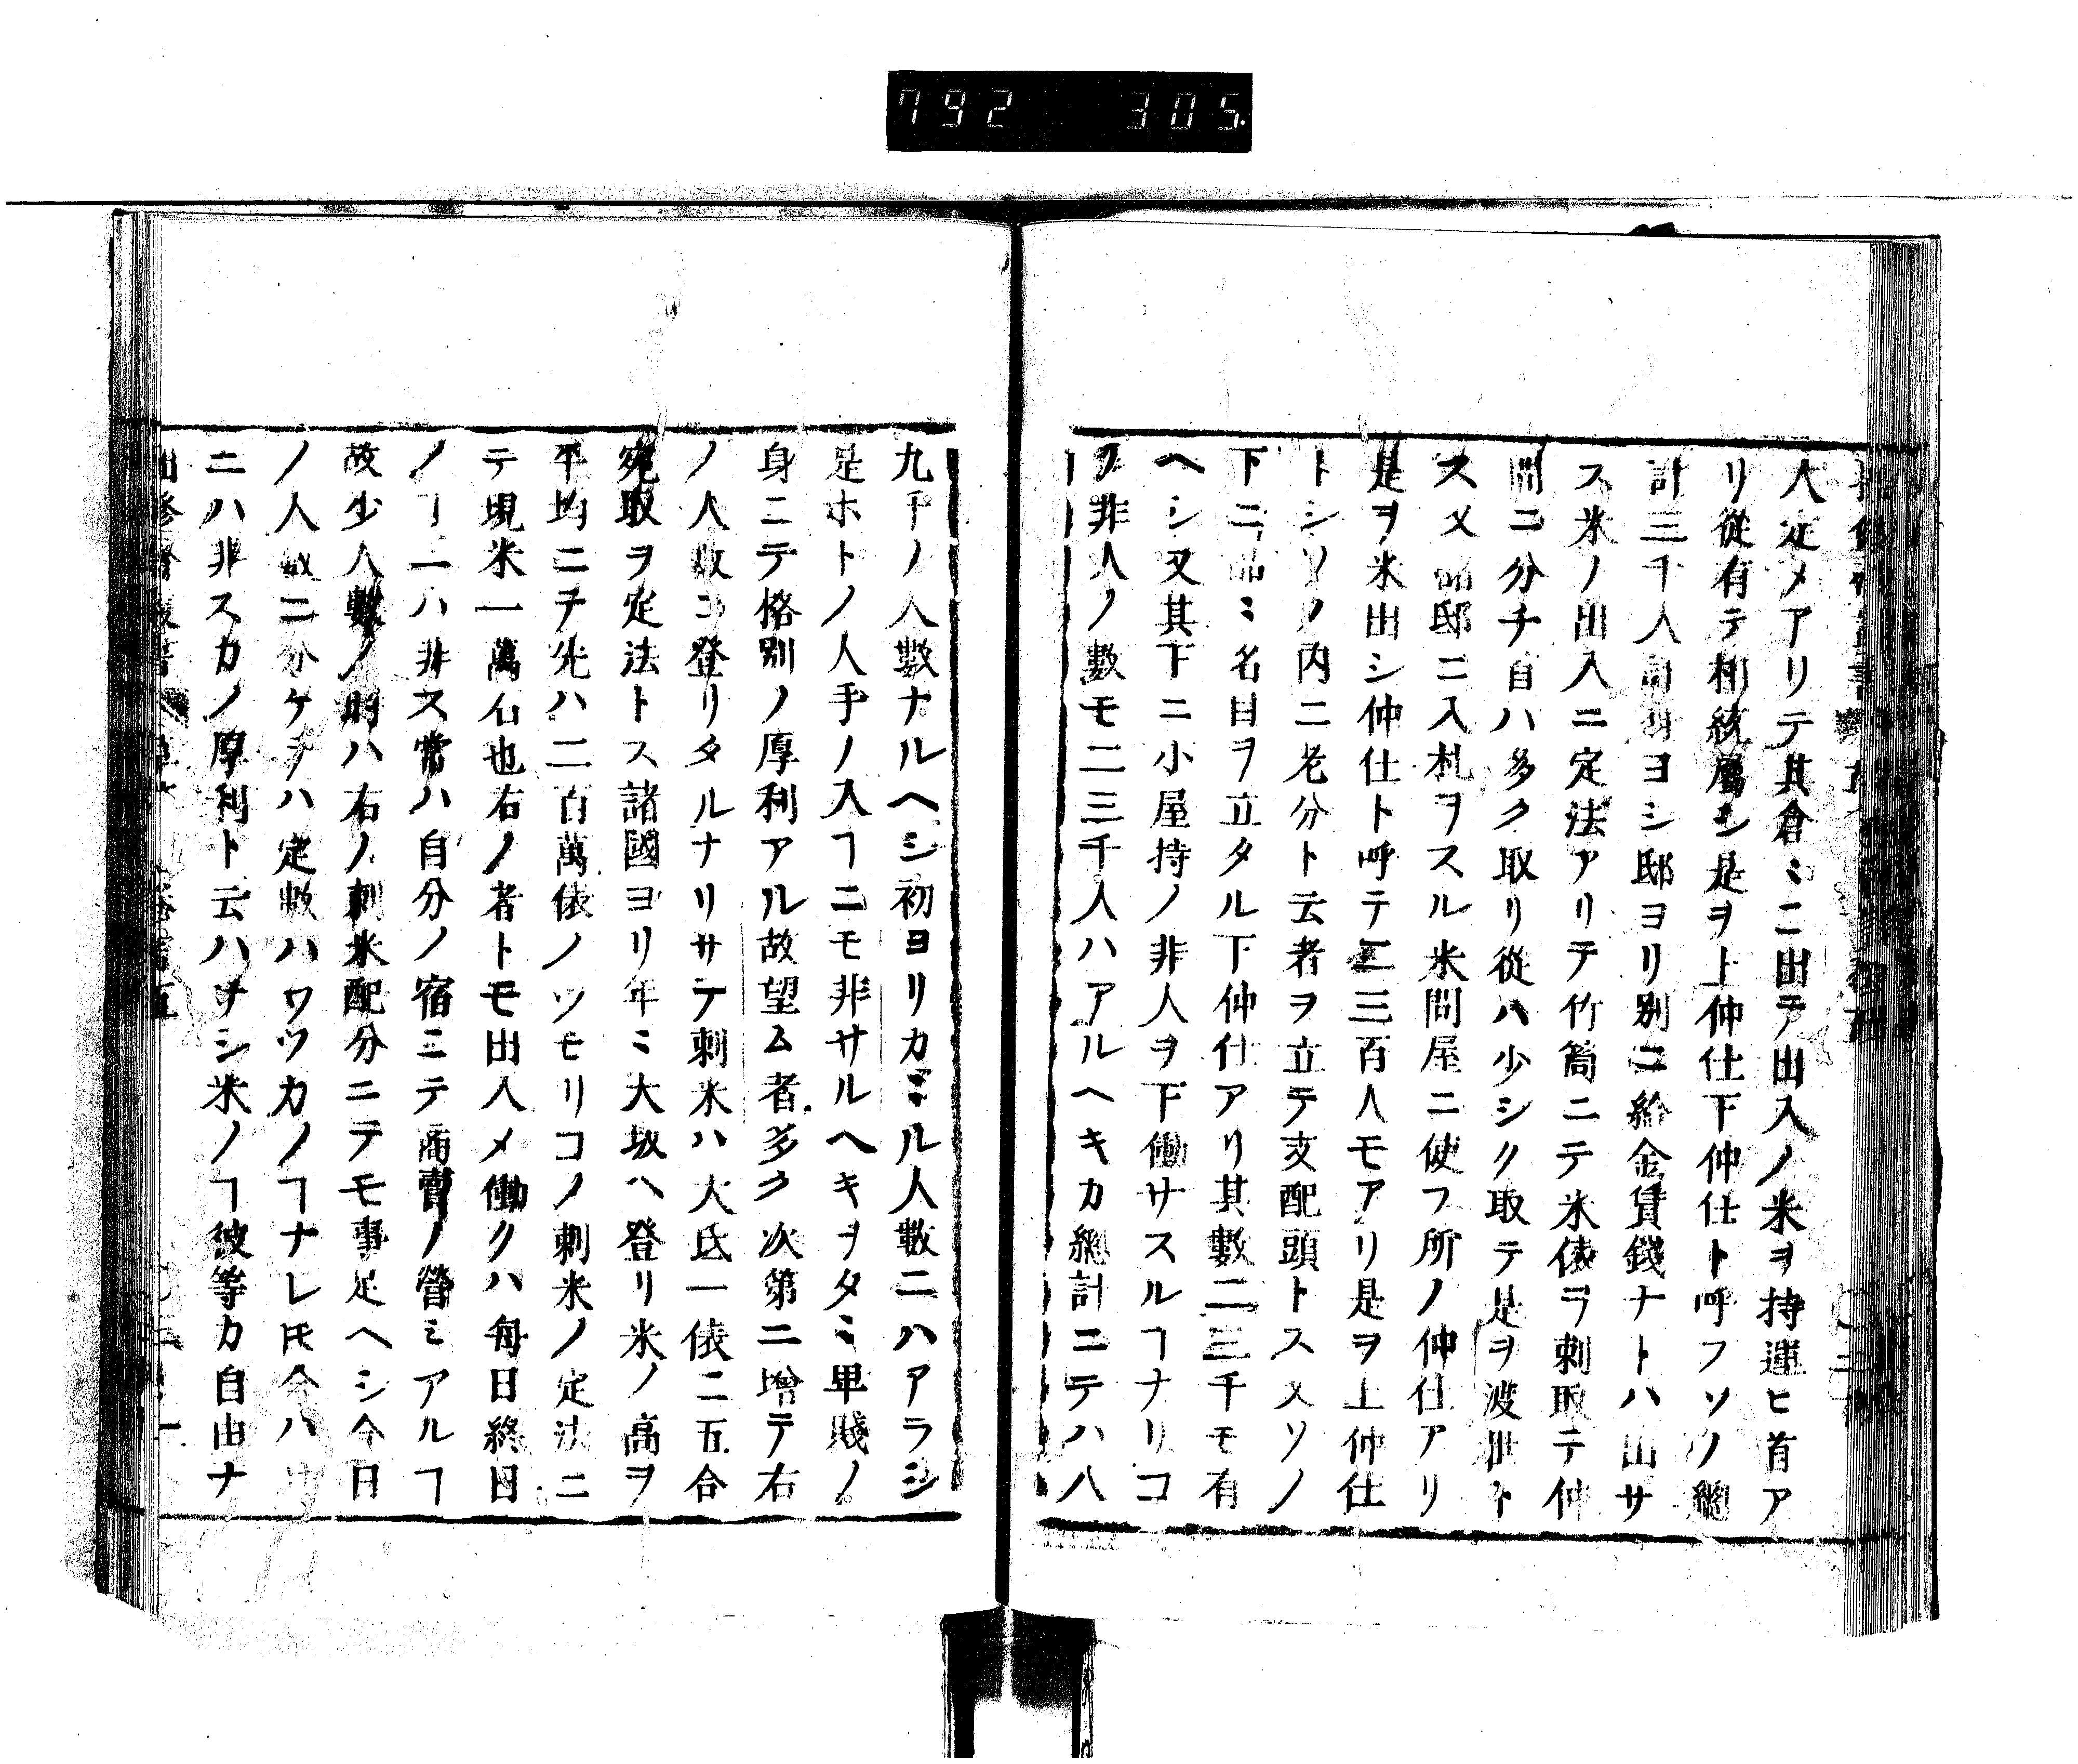 792 305
人定メアリテ其倉ミニ出テ出入ノ米ヲ持運ヒ首ア
リ從有テ相統屬シ是ヲ上仲仕下仲仕ト呼フソノ總
計三千人 ヨシ邸ヨリ別ニ給金賃錢ナトハ出サ
ス米ノ出入ニ定法アリテ竹筒ニテ米俵ヲ刺取テ仲
間ニ分チ首ハ多ク取リ從ハ少シク取テ是ヲ渡世ト
ス又諸邸ニ入札ヲスル米問屋ニ使フ所ノ仲仕アリ
是ヲ米出シ仲仕ト呼テ二三百人モアリ是ヲ上仲仕
トシソノ内ニ老分ト云者ヲ立テ支配頭トス又ソノ
下ニ品ミ名目ヲ立タル下仲仕アリ其數二三千モ有
ヘシ又其下ニ小屋持ノ非人ヲ下働サスルヿナリコ
ノ非人ノ數モ二三千人ハアルヘキカ總計ニテハ八
九千ノ人數ナルヘシ初ヨリカミル人數ニハアラシ
是ホトノ人手ノ入ヿニモ非サルヘキヲタミ卑賤ノ
身ニテ格別ノ厚利アル故望ム者多ク次第ニ增テ右
ノ人數ニ登リタルナリサテ刺米ハ大氐一俵ニ五合
宛取ヲ定法トス諸國ヨリ年ミ大坂ヘ登リ米ノ高ヲ
平均ニチ先ハ二百萬俵ノツモリコノ刺米ノ定法ニ
テ現米一萬石也右ノ者トモ出入メ働クハ毎日終日
ノヿニハ非ス常ハ自分ノ宿ニテ商賣ノ營ミアルヿ
故少人數ノ時ハ右ノ刺米配分ニテモ事足ヘシ今日
ノ人數ニ分ケテハ定數ハワツカノヿナレ𪜈今ハ中
ニハ非スカノ厚利ト云ハナシ米ノヿ彼等カ自由ナ